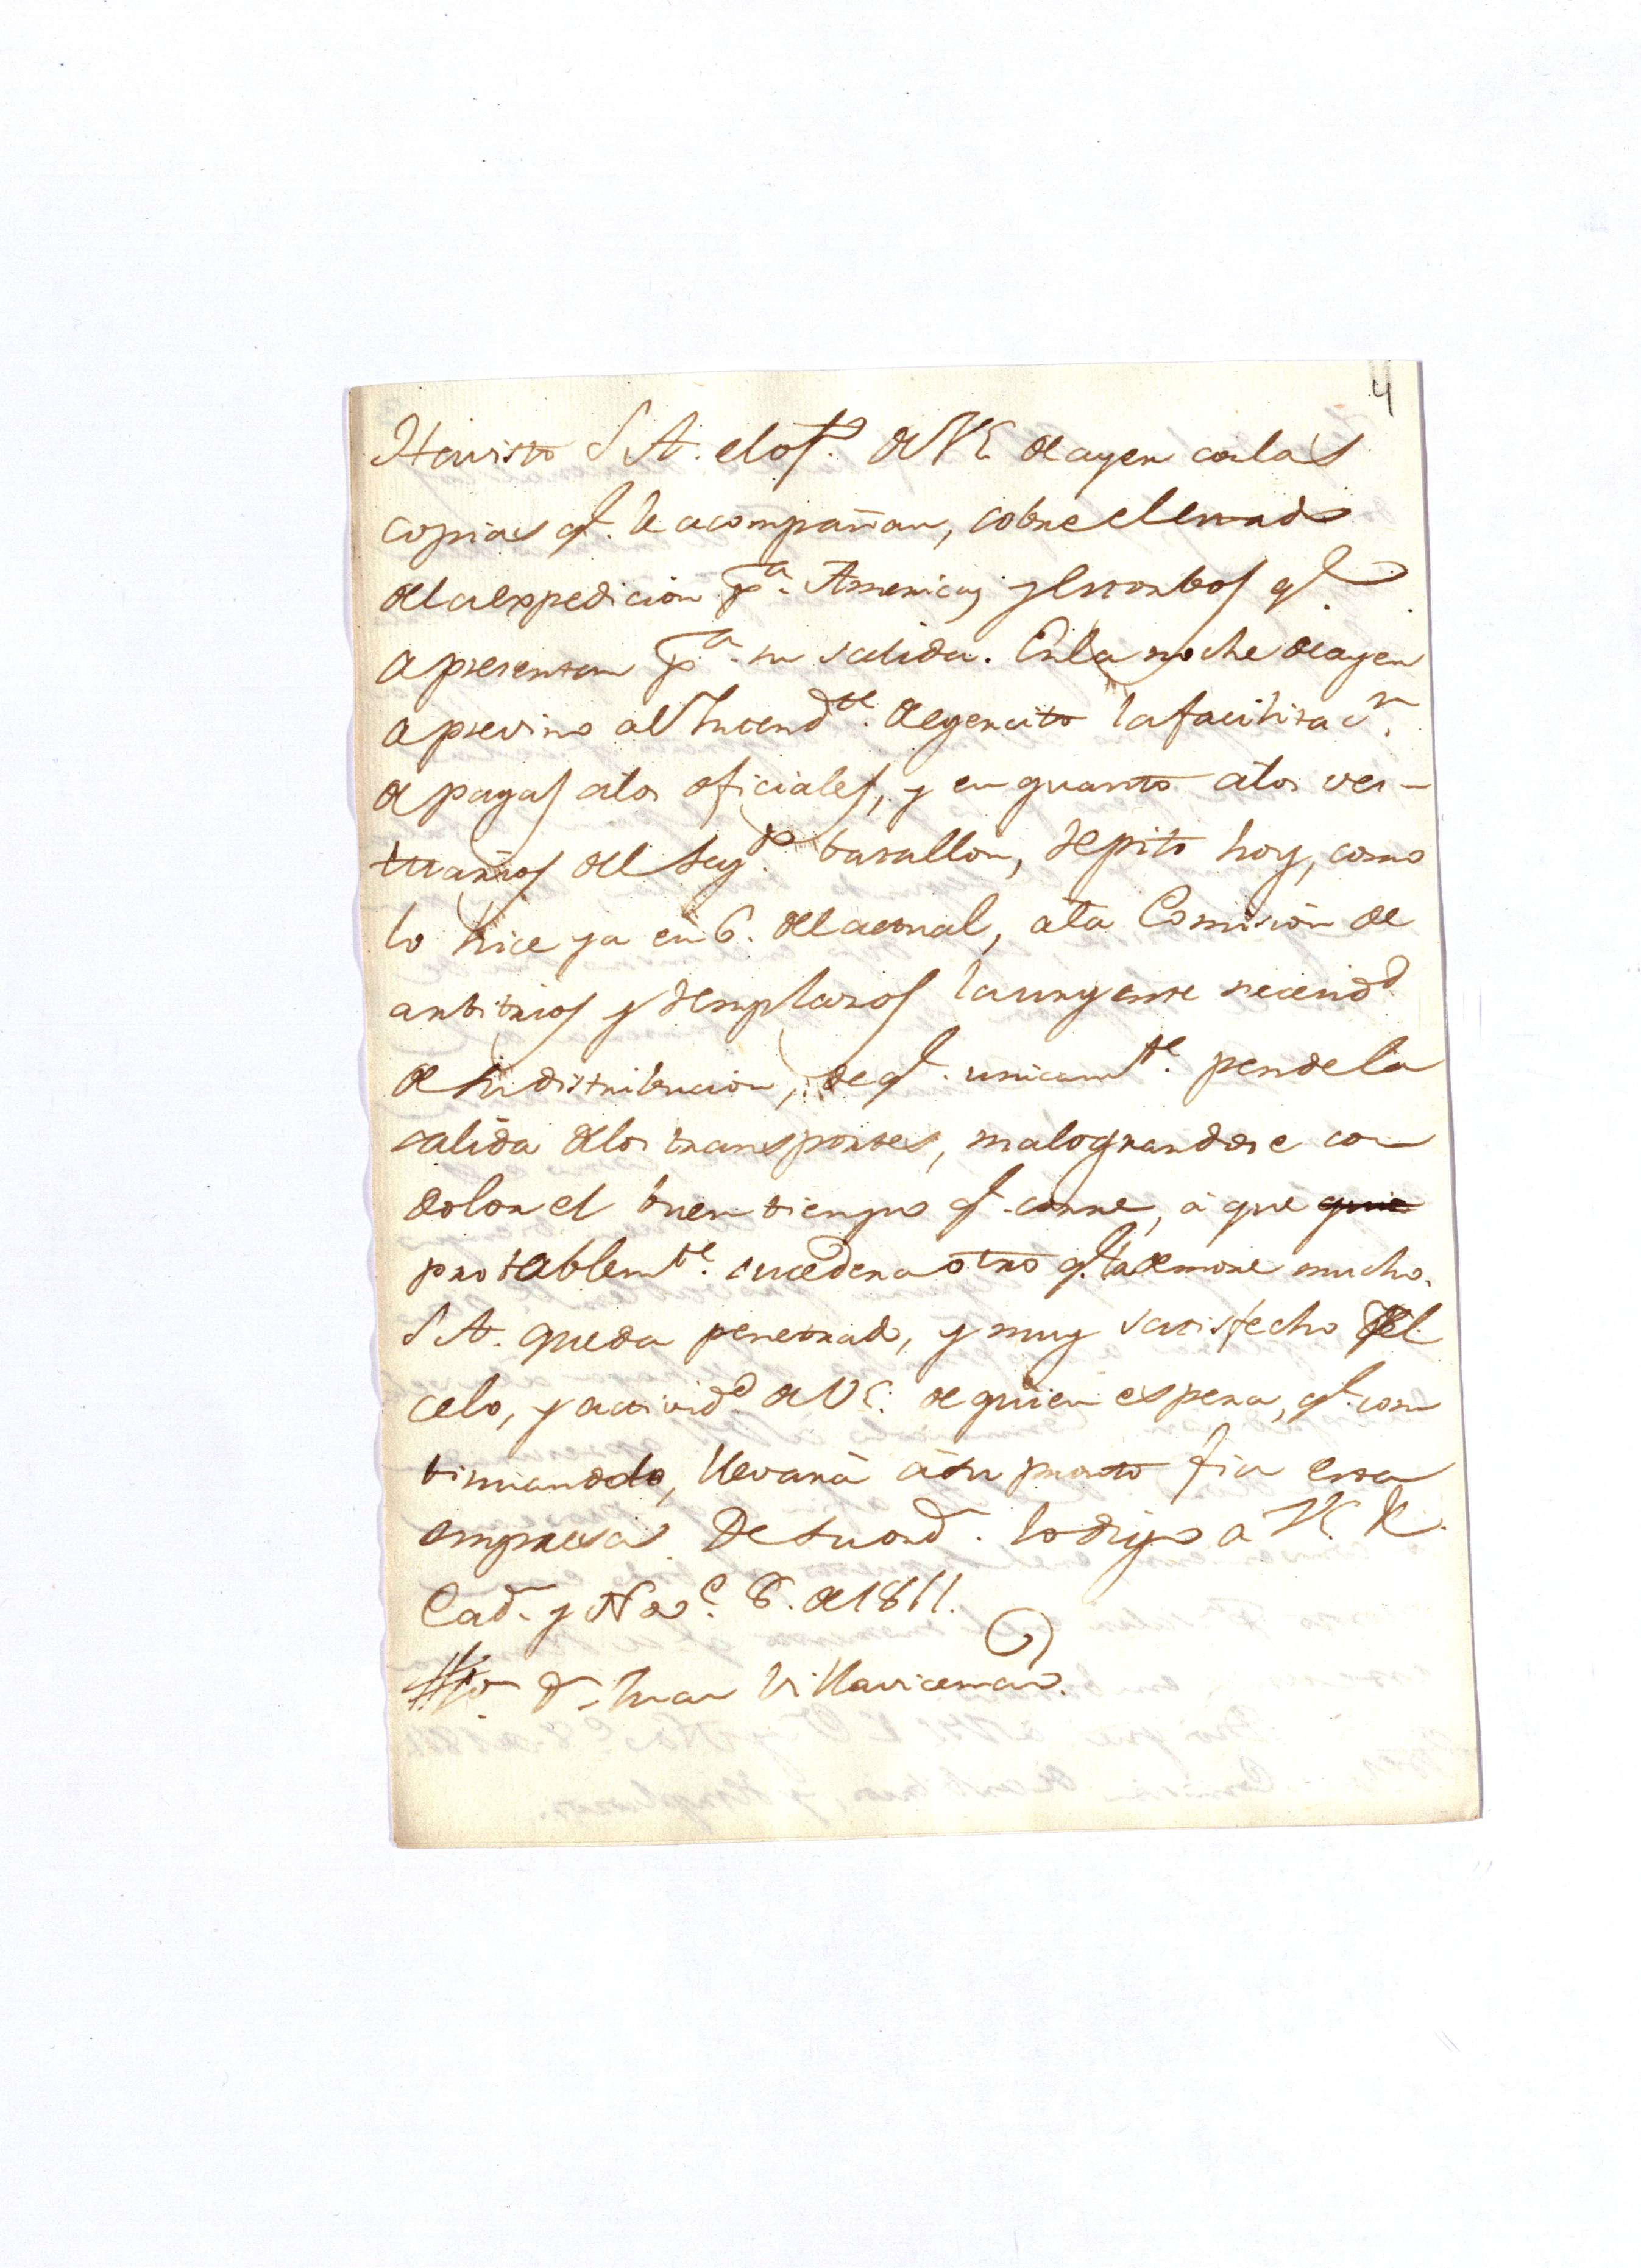 4
Ha visto S A. el of.º de V E de ayer con las
copias q.e le acompañan, sobre el estado
de la expedicion p.a America, y estorbos q.e
se presentan p.a su salida. En la noche de ayer
se previno al Intend.te de egercito la facilitac.n
de pagas a los oficiales, y en quanto a los ves-
tuarios del seg.do batallon, repito hoy, como
lo hice ya en 6. del actual, a la Comision de
arbitrios y reemplazos la urgente necesid.d
de su distribucion, de q.e unicam.te pende la
salida de los transportes, malograndose con
dolor el buen tiempo q.e corre, à que
probablem.te sucedera otro q.e la demore mucho.
S A. queda penetrado, y muy satisfecho del
celo, y activid.d de V E. de quien espera, q.e con
tinuandolo, llevarà à su pronto fin esta
empresa. De su ord.n lo digo a V. E.
Cad.z y Nov.e 8. de 1811.
S.or D.n Juan Villavicencio.